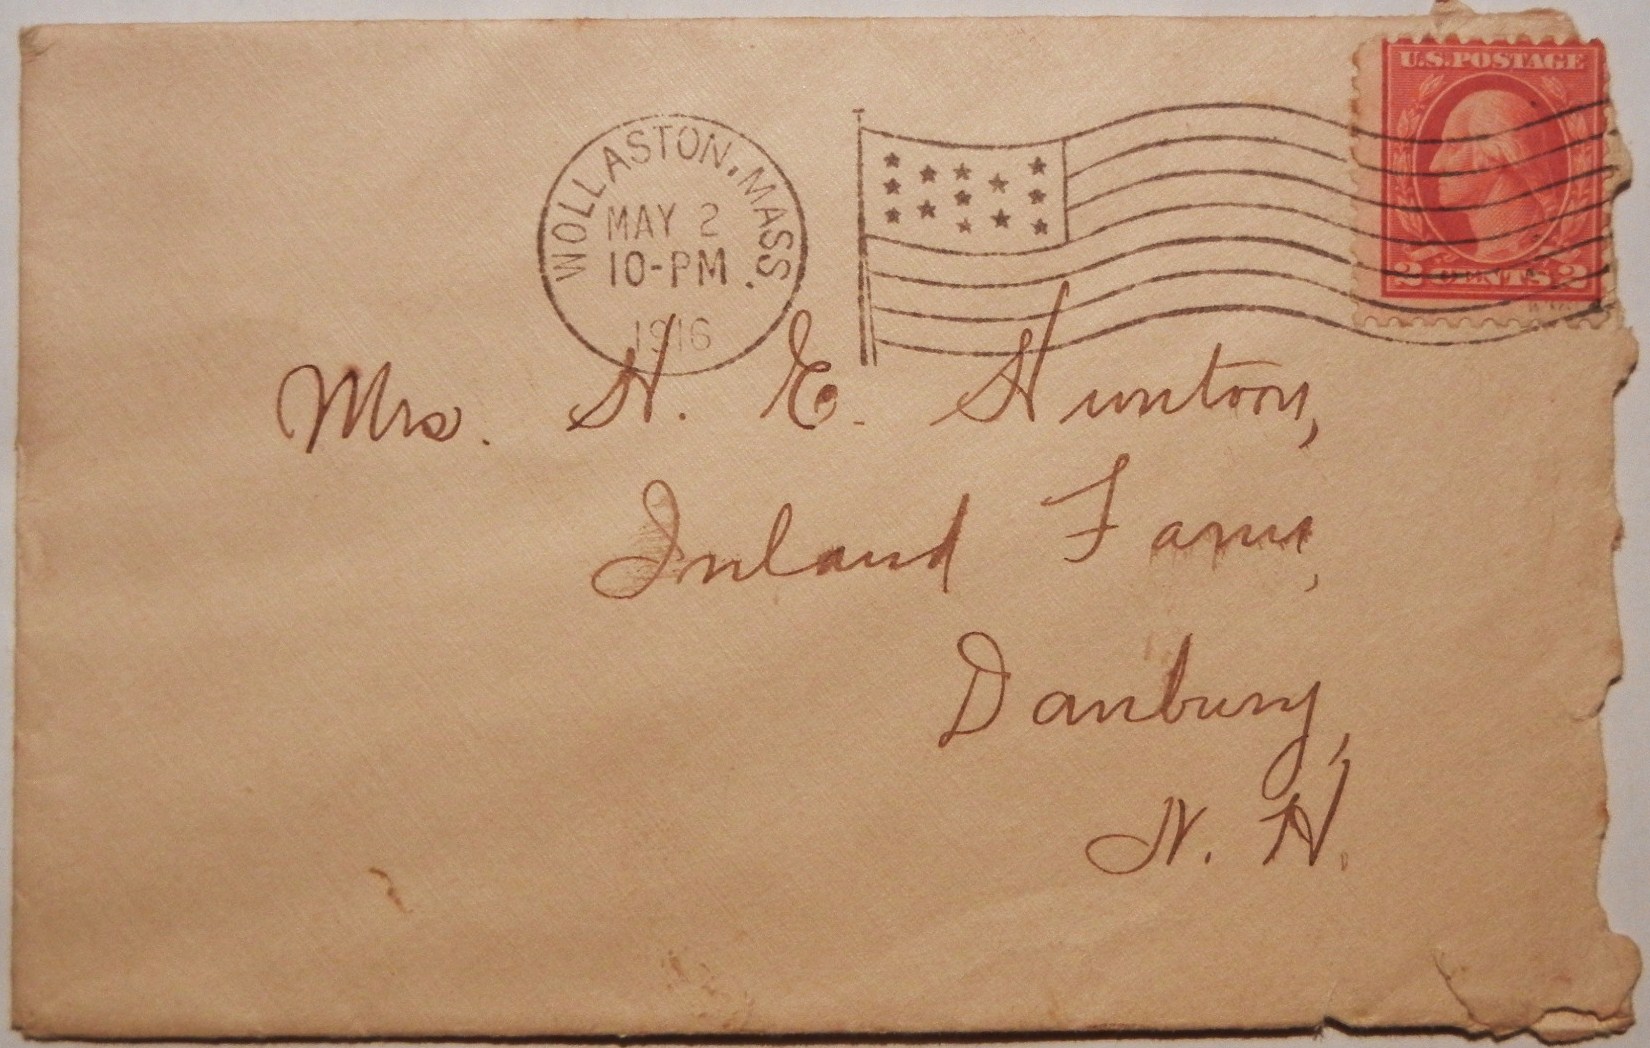 U.S. POSTAGE
2 CENTS 2
WOLLASTON, MASS.
MAY 2
10-PM
1916
Mrs. H. E. Huntoon,
Inland Farm,
Danbury,
N. H.